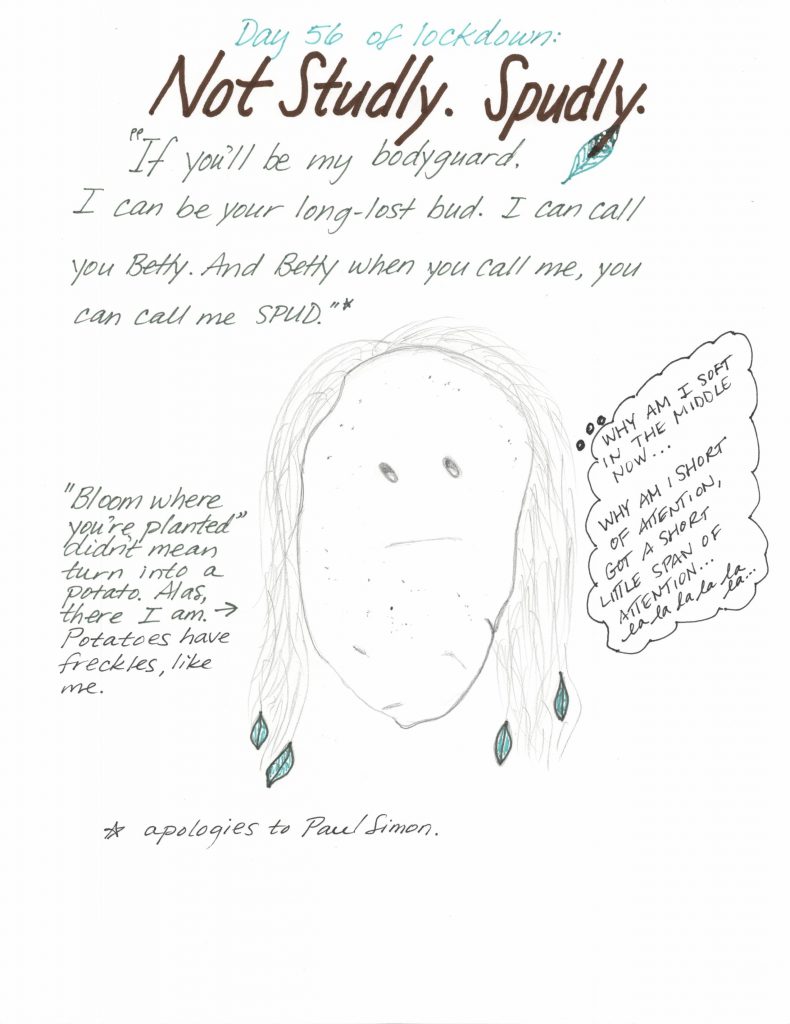 Day 56 of lockdown:
Not Studly. Spudly.
"If you'll be my bodyguard,
I can be your long-lost bud. I can call
you Betty. And Betty when you call me, you
can call me SPUD."*
WHY AM I SOFT
IN THE MIDDLE
NOW...
WHY AM I SHORT
OF ATTENTION,
GOT A SHORT
LITTLE SPAN OF
ATTENTION...
la la la la la la
la...
"Bloom where
you're planted"
didn't mean
turn into a
potato. Alas,
there I am. →
Potatoes have
freckles, like
me.
* apologies to Paul Simon.